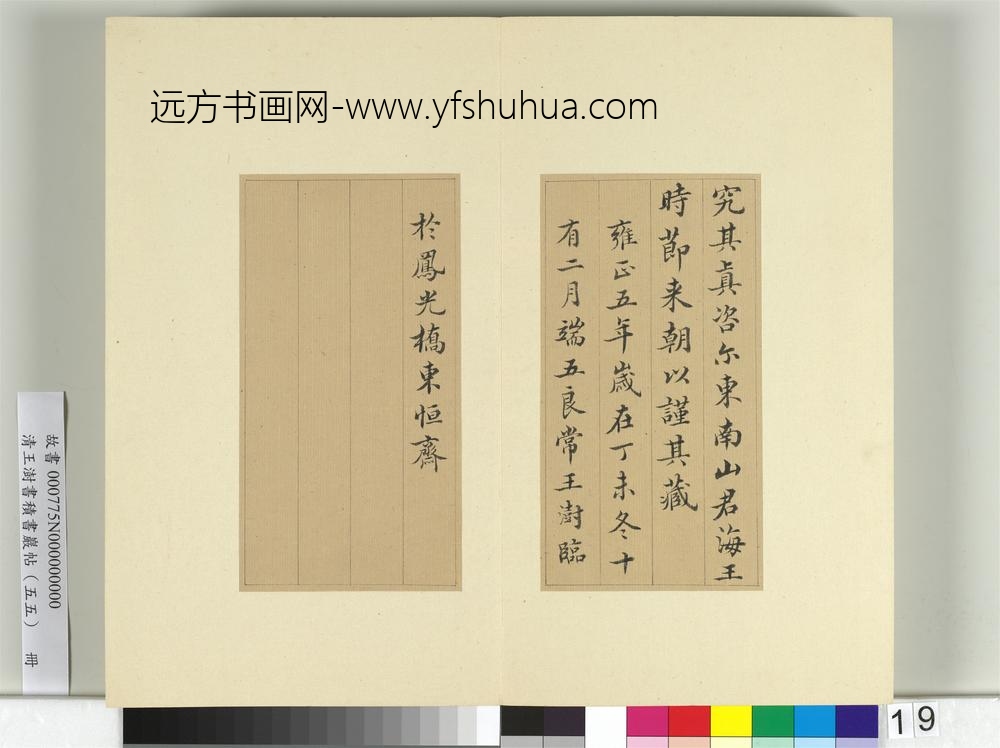 远方书画网-www.yfshuhua.com
究其真咨尔東南山君海王
時莭来朝以謹其藏
雍正五年歲在丁未冬十
有二月端五良常王澍臨
於鳳光橋東恒齋
故書 000775N000000000
清王澍書積書巖帖（五五） 冊
19